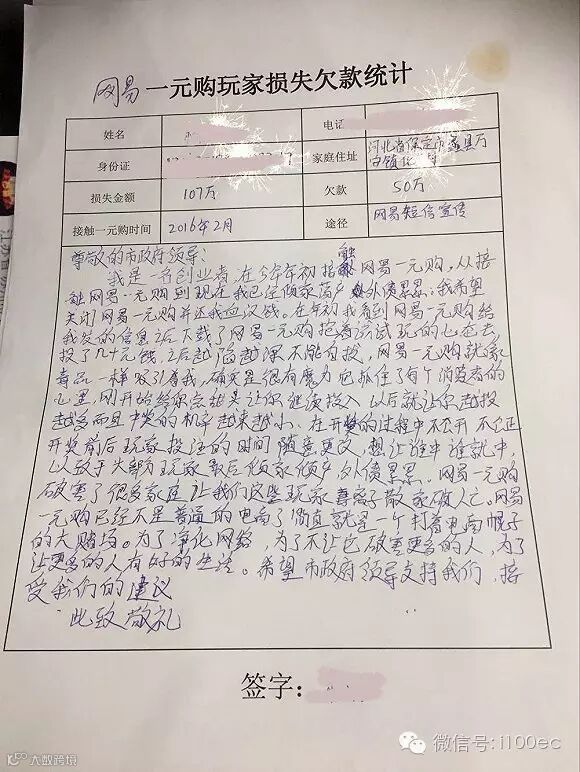 网易一元购玩家损失欠款统计
姓名 电话
身份证 家庭住址 河北省保定市 县万
镇
损失金额 107万 欠款 50万
接触一元购时间 2016年2月 途径 网易短信宣传
尊敬的市政府领导:
我是一名创业者,在今年年初接触网易一元购,从接
触网易一元购到现在我已经倾家荡产外债累累;我希望
关闭网易一元购并还我血汗钱。在年初我看到网易一元购给
我发的信息之后下载了网易一元购抱着试试玩的心态去
投了几十元钱,之后越陷越深不能自拔,网易一元购就像
毒品一样吸引着我,确实是很有魔力它抓住了每个消费者的
心里,刚开始给你点甜头让你继续投入以后就让你越投
越多而且中奖的机率越来越小、在开奖的过程中不公开不公正
开奖前后玩家投注的时间随意更改,想让谁中谁就中,
以致于大部分玩家最后倾家倾产外债累累。网易一元购
破害了很多家庭让我们这些玩家妻离子散家破人亡。网易
一元购已经不是普通的电商了简直就是一个打着电商帽子
的大赌场。为了净化网络,为了不让它破害更多的人,为了
让更多的人有好的生活。希望市政府领导支持我们,接
受我们的建议
此致敬礼
签字:
微信号:i100ec
大数跨境